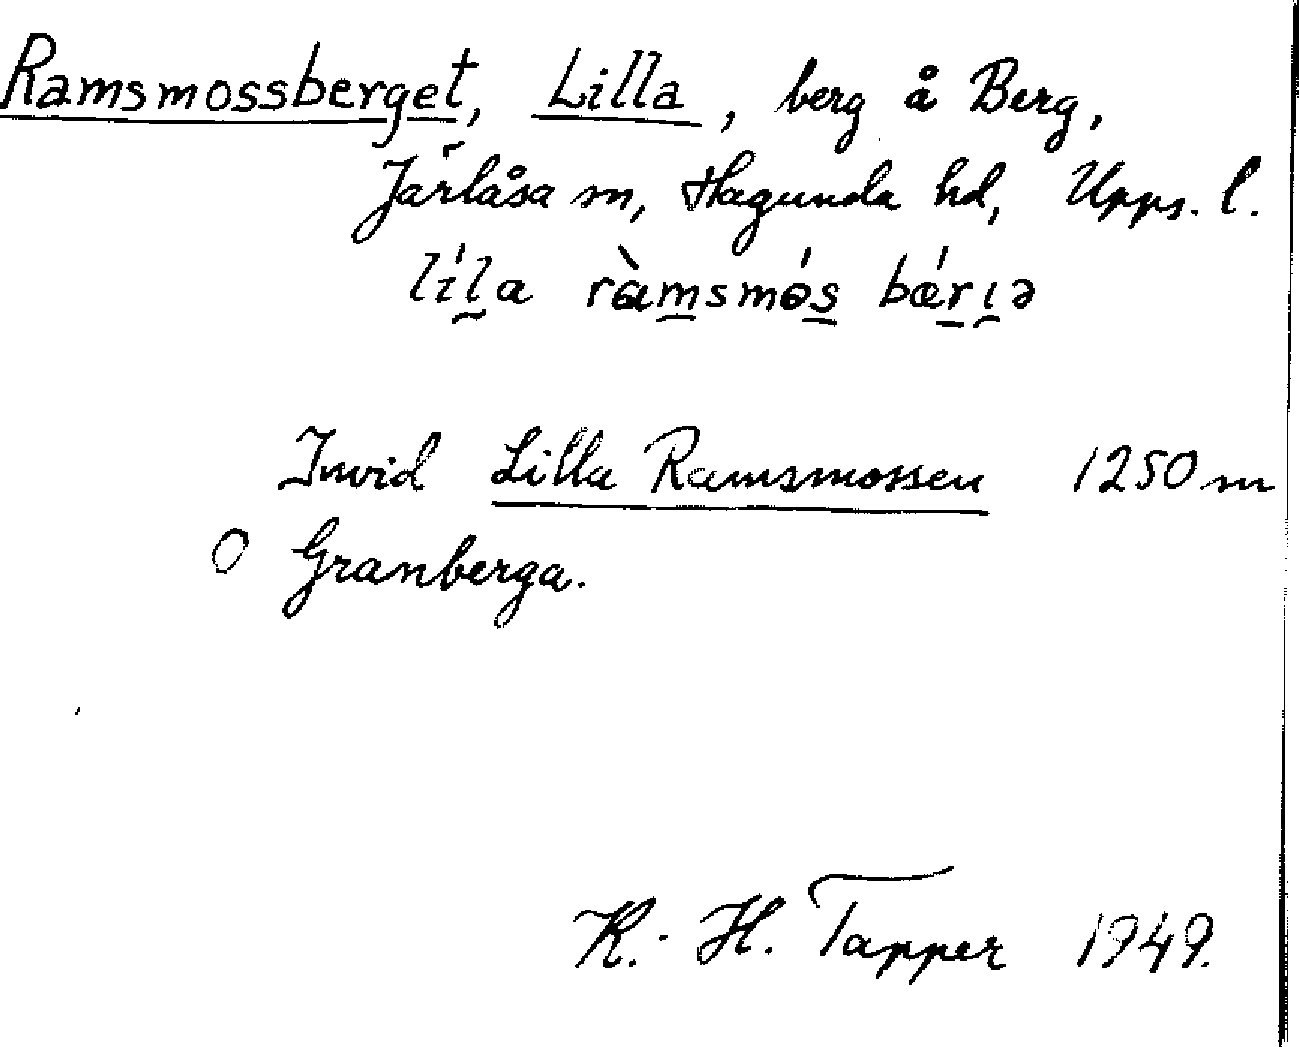 Ramsmossberget, Lilla, berg å Berg,
Järlåsa sn, Hagunda hd, Upps. l.
líla ràmsmós bǽrıə
Invid Lilla Ramsmossen 1250 m
O Granberga.
K.-H. Tapper 1949.